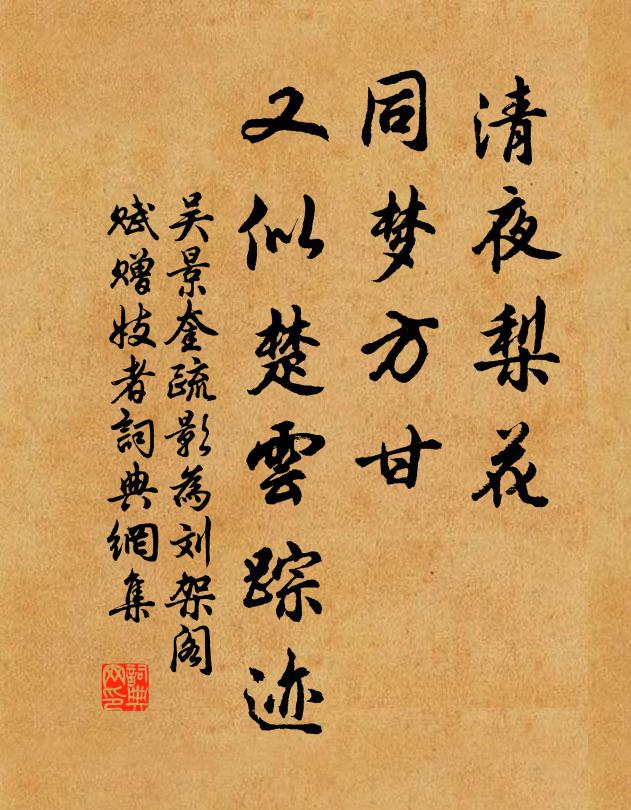 清夜梨花
同梦方甘
又似楚雲踪迹
吴景奎疏影為刘架阁
赋赠妓者詞典網集
詞典网印